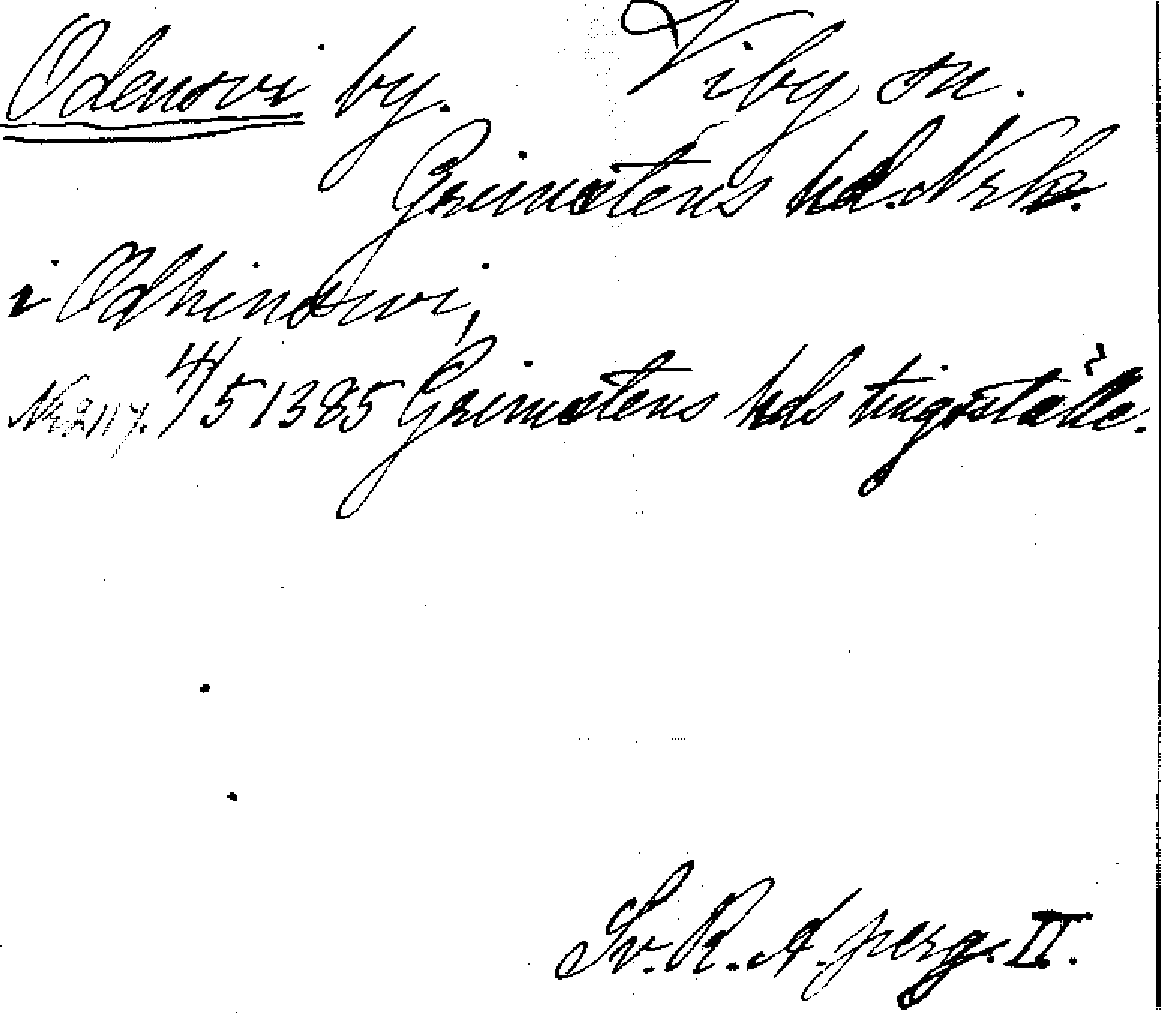 Odensvi by. Viby sn.
Grimstens hd. Nrk.
i Odhinswi,
Nr 2117. 4/5 1385 Grimstens hds tingställe.
Sv. R. A. perg. II.